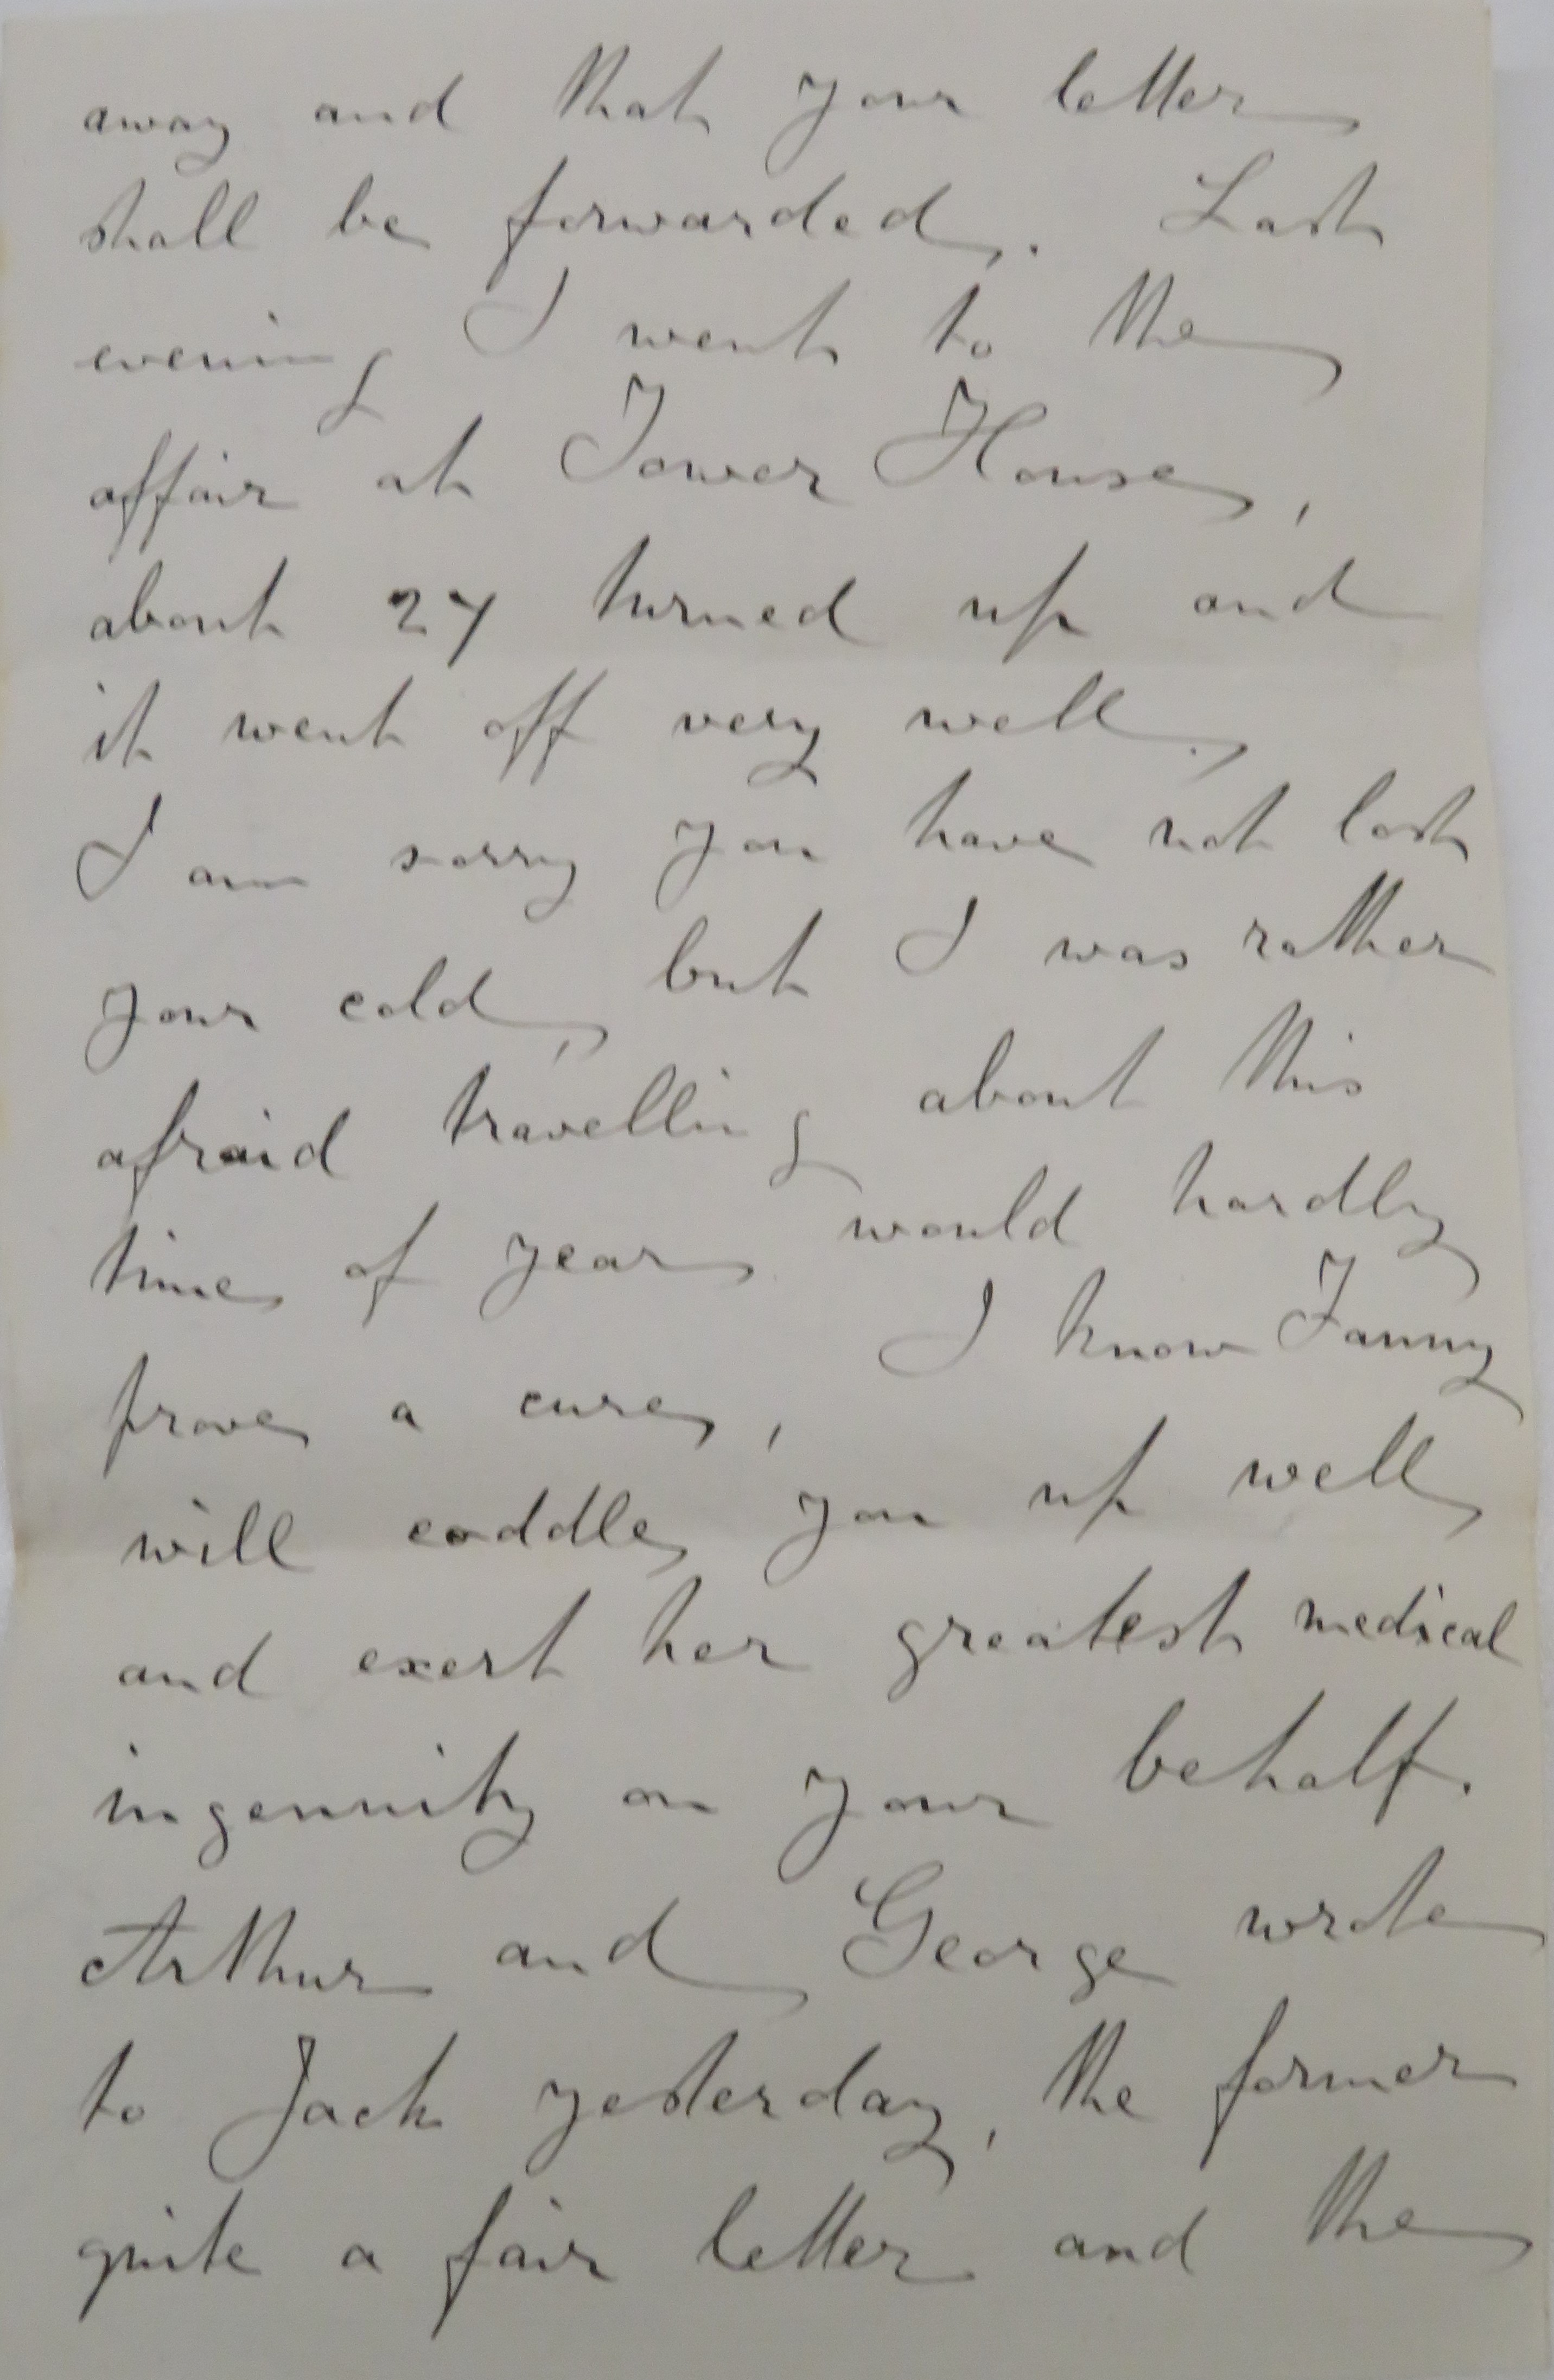 away and that your letter
shall be forwarded. Last
evening I went to the
affair at Tower House,
about 27 turned up and
it went off very well.
I am sorry you have not lost
your cold, but I was rather
afraid travelling about this
time of year would hardly
prove a cure, I know Fanny
will coddle you up well
and exert her greatest medical
ingenuity on your behalf.
Arthur and George wrote
to Jack yesterday, the former
quite a fair letter and the